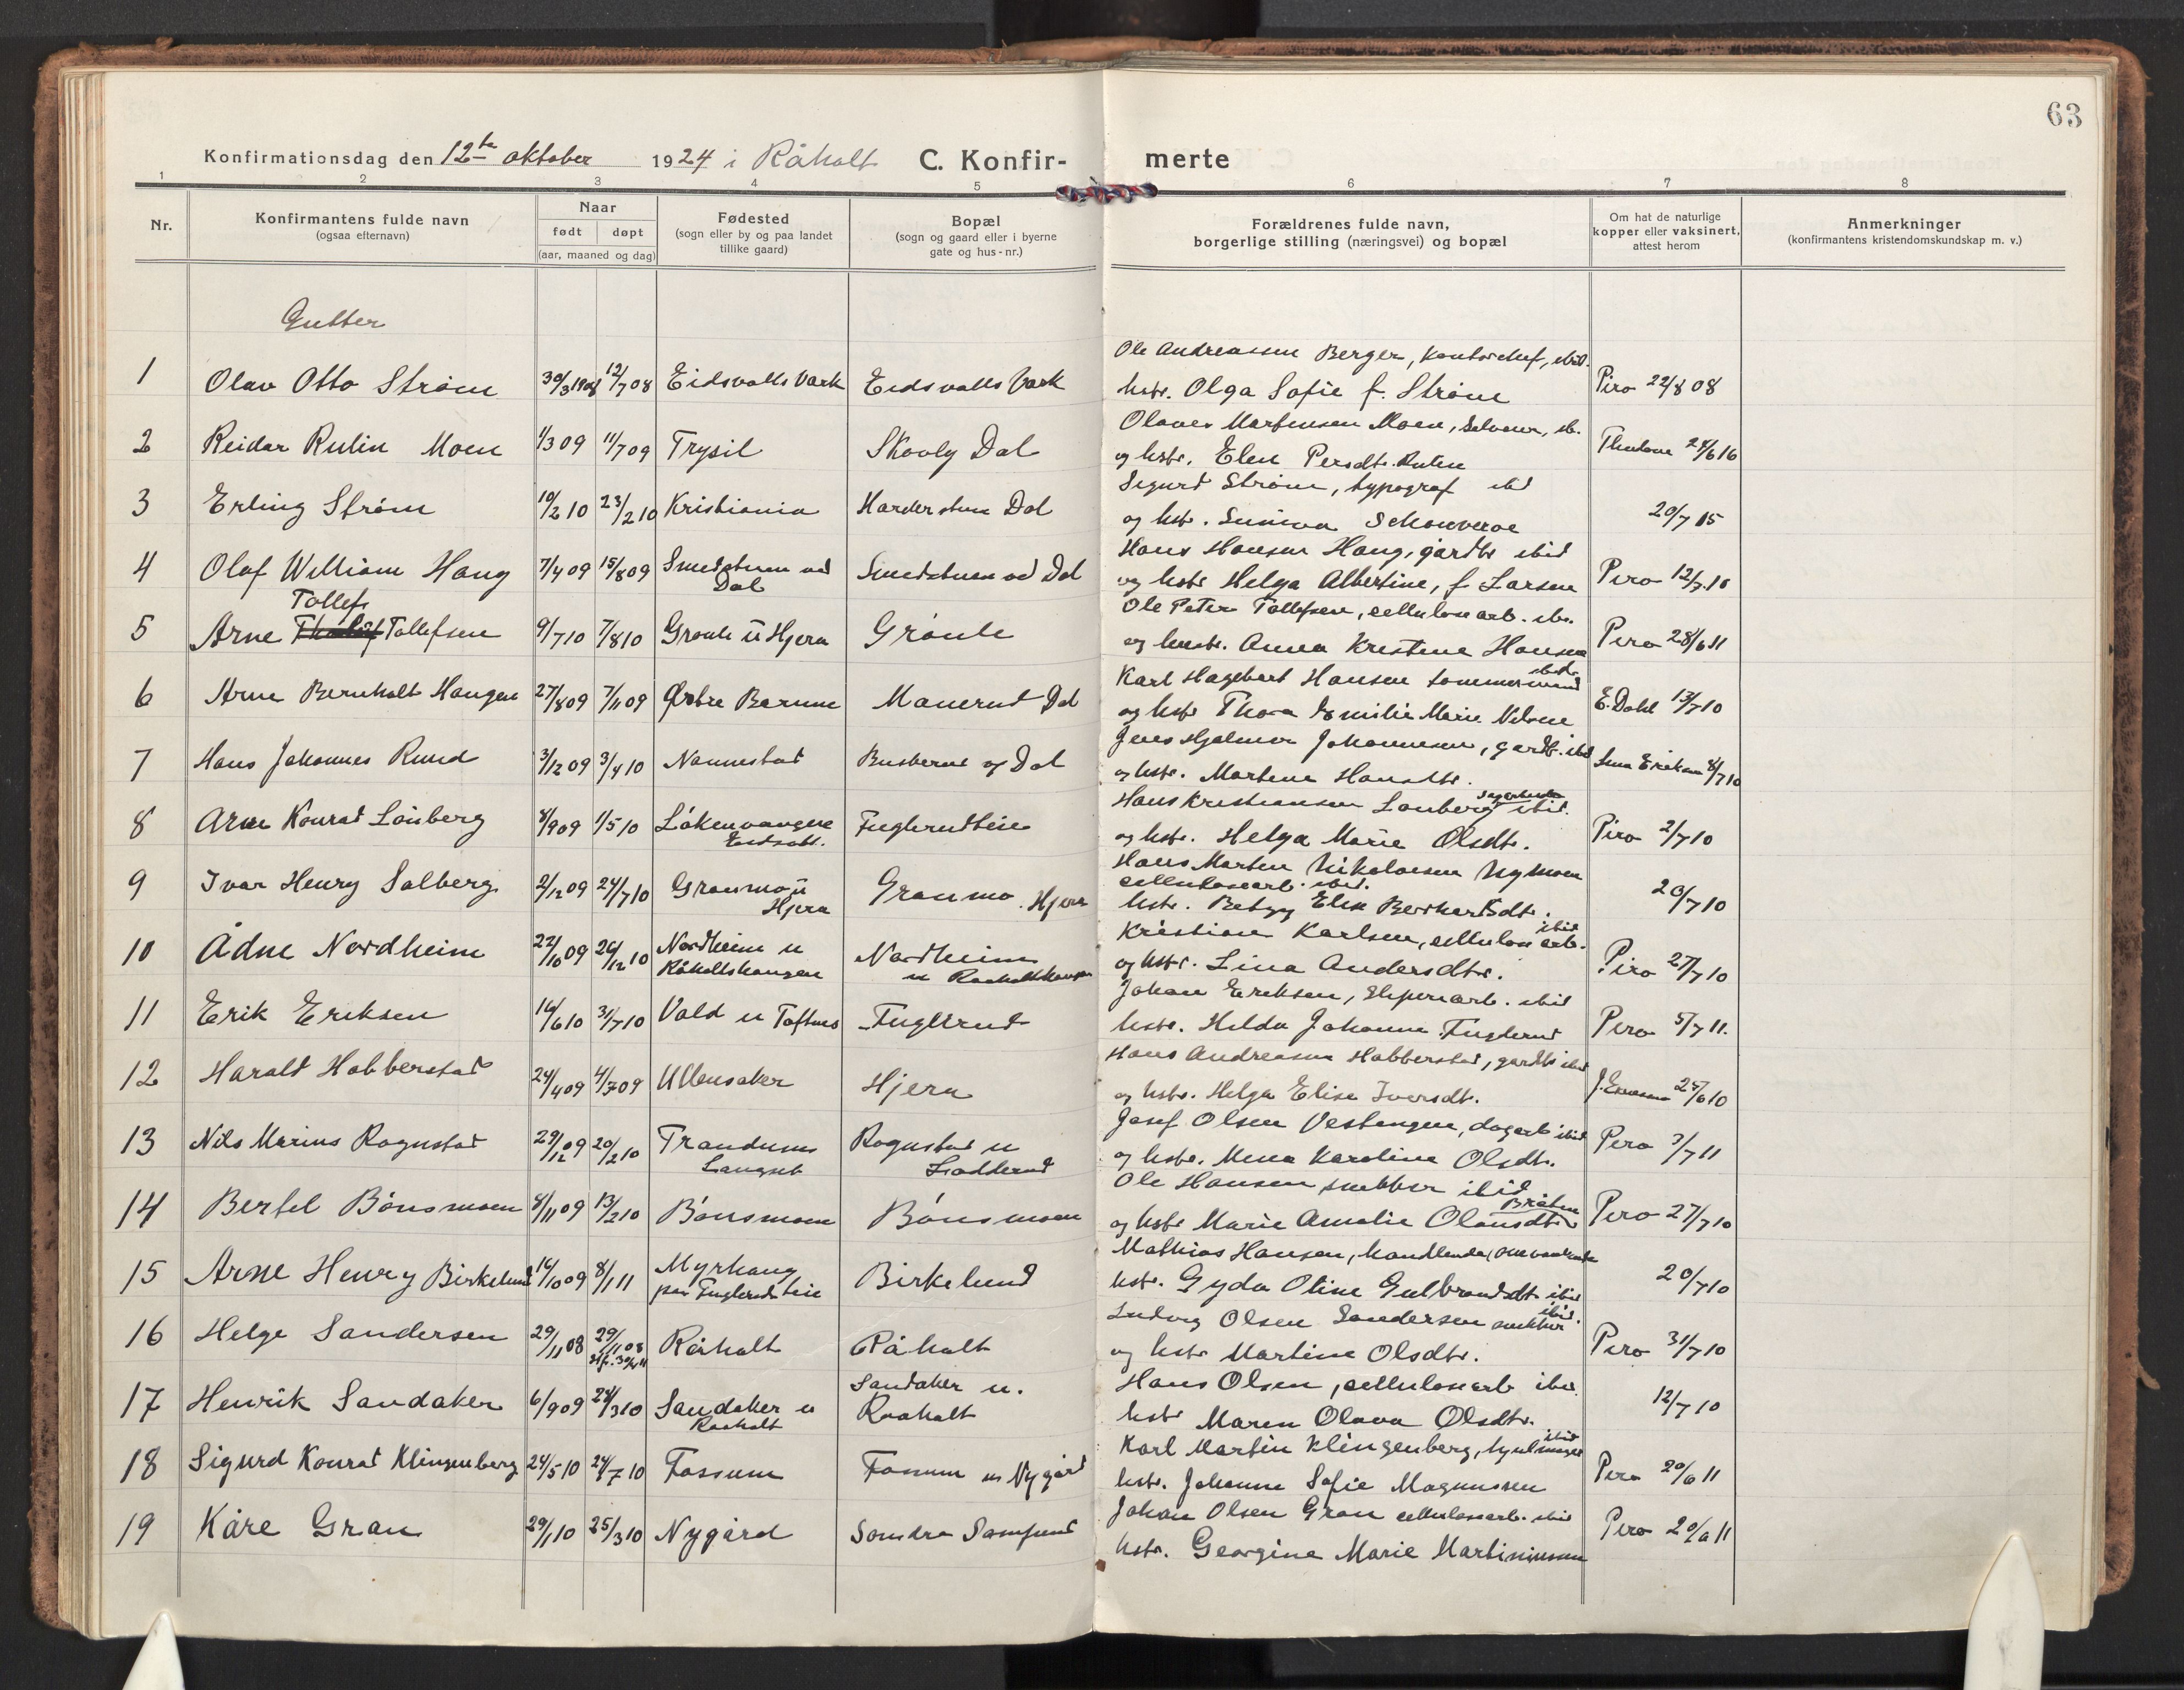 63
Konfirmationsdag den 12te oktober 1924 i Råholt C. Konfir- merte
1 2 3 4 5 6 7 8
Nr. Konfirmantens fulde navn (ogsaa efternavn) Naar født døpt (aar, maaned og dag) Fødested (sogn eller by og paa landet tillike gaard) Bopæl (sogn og gaard eller i byerne gate og hus-nr.) Forældrenes fulde navn, borgerlige stilling (næringsvei) og bopæl Om hat de naturlige kopper eller vaksinert, attest herom Anmerkninger (konfirmantens kristendomskundskap m. v.)
Gutter
Ole Andreassen Berger, Kontorchef, ibid.
1 Olav Otto Strøm 30/3 1908 12/7 08 Eidsvolls Værk Eidsvolls Værk hstr. Olga Sofie f. Strøm Piro 22/8 08
Olaves Martinsen Moen,
2 Reidar Rulin Moen 1/3 09 11/7 09 Trysil Skovly Dal og hstr. Elen Persdtr.
Sigurd Strøm, typograf ibid
3 Erling Strøm 10/2 10 23/2 10 Kristiania Dal og hstr. 20/7 15
Hans Hansen Haug, gårdbr ibid
4 Olaf William Haug 7/4 09 15/8 09 Smedstuen ved Dal Smedstuen ved Dal og hstr Helga Albertine, f. Larsen Piro 12/7 10
Tollef Ole Peter Tollefsen, cellulosearb. ib.
5 Arne Tollefsen 9/7 10 7/8 10 Grønli u Hjera Grønli og hustr. Anna Kristine Hansen Piro 28/6 11
Karl Hagebart Hansen tømmermand ibid.
6 Arne Bernholt Haugen 27/8 09 7/11 09 Østre Bærum Dal og hstr Thora Emilie Marie Nilsen E. Dahl 13/7 10
Jens Hjalmar Johannesen, gardb. ibid
7 Hans Johannes Rund 3/12 09 3/4 10 Nannestad Dal og hstr. Martine Hansdtr. 8/7 10
Hans Kristiansen Lönberg ibid.
8 Arne Konrad Lönberg 8/9 09 1/5 10 Løkenvangen Eidsvoll. Fuglerudteie og hstr. Helga Marie Olsdtr. Piro 2/7 10
Hans Martin Nikolaisen Nymoen cellulosearb. ibid.
9 Ivar Henry Solberg 2/12 09 24/7 10 Granmo u Hjera Granmo. Hjera hstr. Betzy Elise 20/7 10
Kristian Karlsen, cellulosearb. ibid
10 Ådne Nordheim 22/10 09 26/12 10 Nordheim u Råholtshaugen Nordheim u Raaholtshaugen og hstr. Lina Andersdtr. Piro 27/7 10
Johan Eriksen, ibid
11 Erik Eriksen 16/6 10 31/7 10 Vold u Tofthus Fuglerud hstr. Hilda Johanne Fuglerud Piro 5/7 11.
Hans Andreassen Habberstad, gardbr ibid
12 Harald Habberstad 24/4 09 4/7 09 Ullensaker Hjera og hstr. Helga Elise Iversdtr. 25/6 10
Josef Olsen Vestengen, dagarb ibid
13 Nils Marius Rognstad 29/12 09 20/2 10 Trandum Langset Rognstad u Ladderud og hstr. Mina Karoline Olsdtr. Piro 3/7 11
Ole Hansen snekker ibid
14 Bertel Bönsmoen 8/11 09 13/2 10 Bönsmoen Bönsmoen og hstr Marie Amalie Olausdtr. Bråten Piro 27/7 10
Mathias Hansen, handlende,
15 Arne Henry Birkelund 14/10 09 8/1 11 Myrhaug paa Fuglerudteie Birkelund hstr. Gyda Oline Gulbrandsdtr ibid 20/7 10
Ludvig Olsen Sandersen snekker ibid.
16 Helge Sandersen 29/11 08 29/11 08 Råholt Råholt og hstr Martine Olsdtr. Piro 31/7 10
Hans Olsen, cellulosearb ibid.
17 Henrik Sandaker 6/9 09 28/3 10 Sandaker u Raaholt Sandaker u. Raaholt hstr Maren Olava Olsdtr. 12/7 10
Karl Martin Klingenberg, hjulmager ibid
18 Sigurd Konrad Klingenberg 24/5 10 24/7 10 Fossum Fossum u Nygård hstr. Johanne Sofie Magnussen Piro 20/6 11
Johan Olsen Gran cellulosearb. ibid
19 Kåre Gran 29/1 10 25/3 10 Nygård Søndre hstr. Georgine Marie Martiniussen Piro 20/6 11